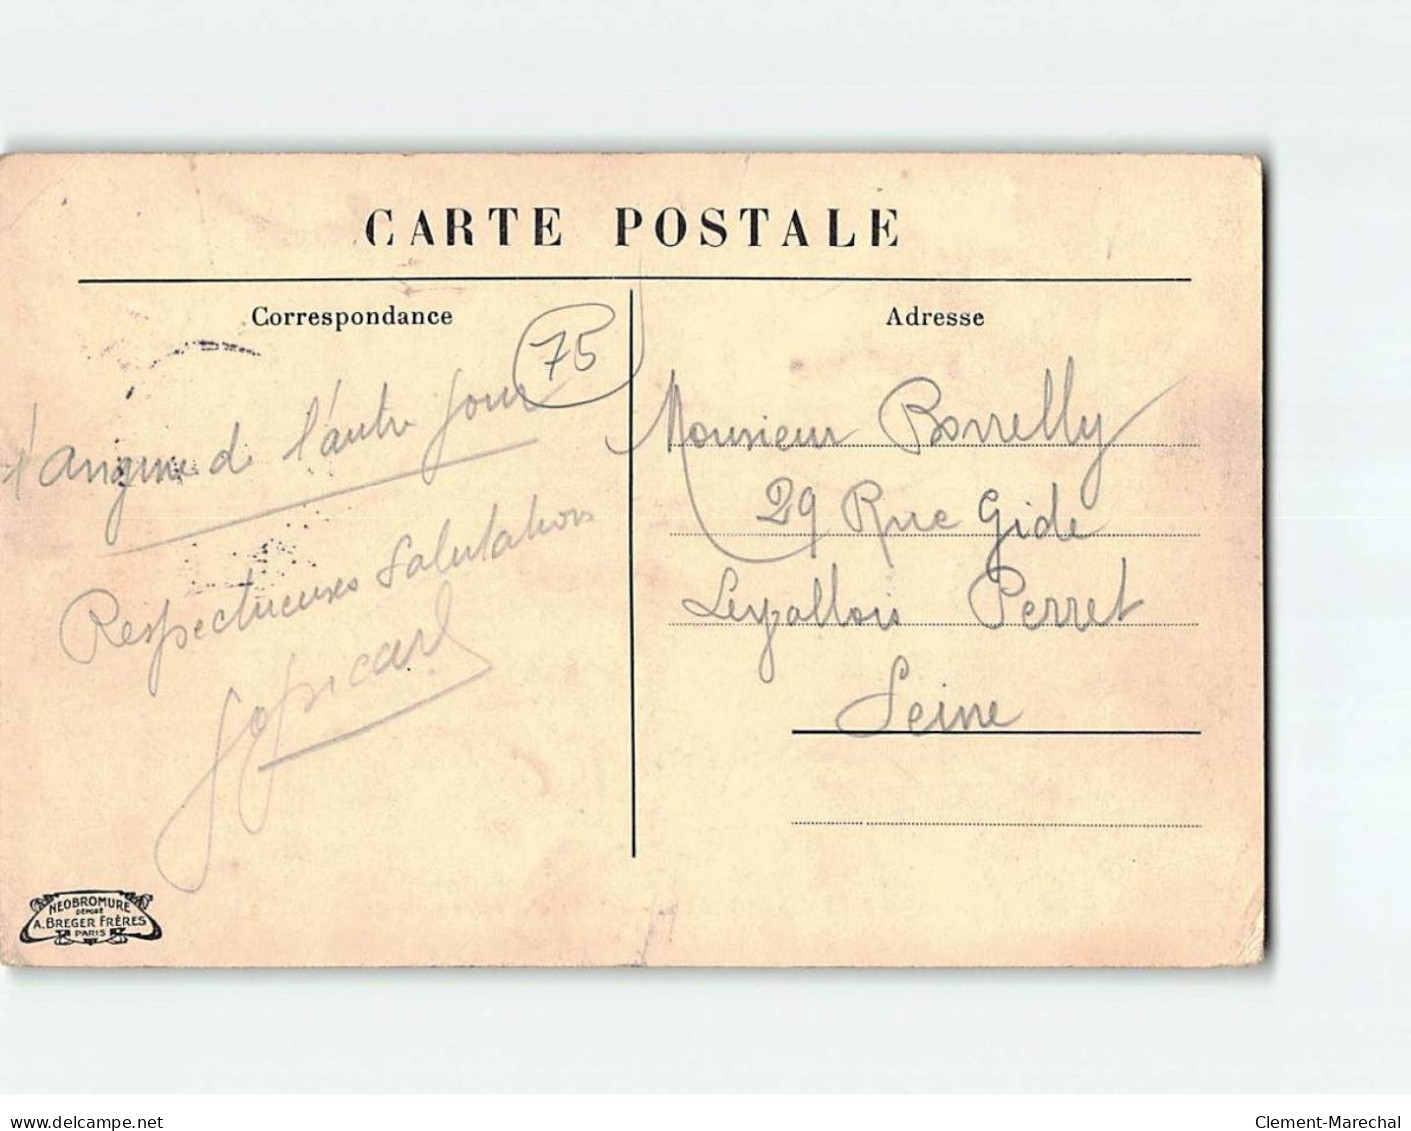 CARTE POSTALE
Correspondance
75
l'autre jour
Respectueuses Salutations
Adresse
Monsieur Borrelly
29 Rue Gide
Levallois Perret
Seine
NEOBROMURE
DÉPOSÉ
A. BREGER FRÈRES
PARIS
www.delcampe.net
Clement-Marechal